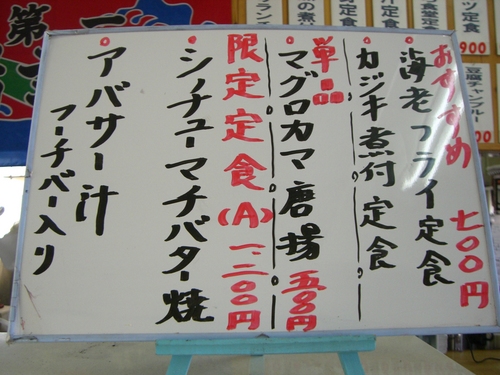 おすすめ
海老フライ定食 七〇〇円
カジキ煮付定食
単品
マグロカマ唐揚 五〇円
限定定食(A) 一、二〇〇円
シチューマチバター焼
アバサー汁
フーチバー入り
第一
定食
900
豆腐チャンプルー